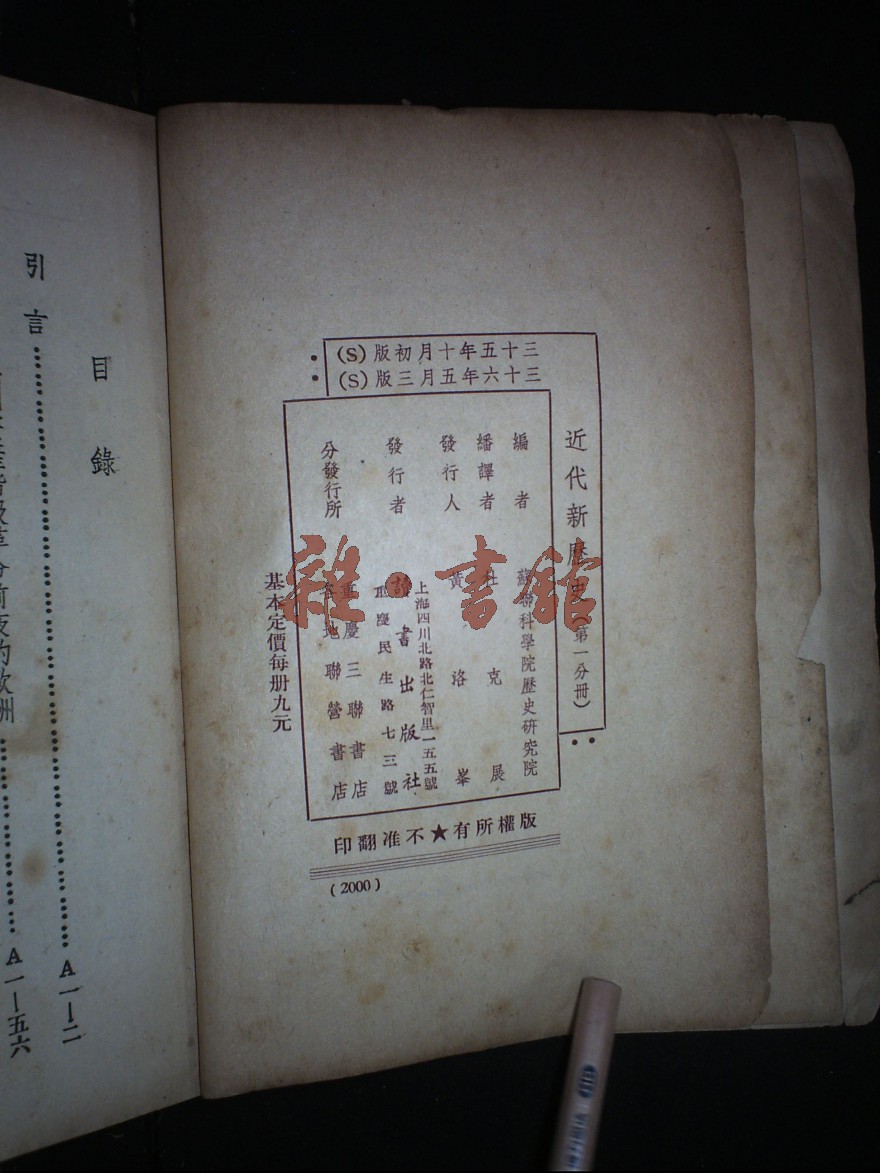 三十五年十月初版(S)
三十六年五月三版(S)
近代新歷史(第一分冊)
編者 蘇聯科學院歷史研究院
繙譯者 杜克展
發行人 黃洛峯
發行者 讀書出版社
上海四川北路北仁智里一五五號
重慶民生路七三號
分發行所 重慶三聯書店
各地聯營書店
基本定價每册九元
版權所有★不准翻印
(2000)
目錄
引言 A一—二
A一—五六
雜·書館